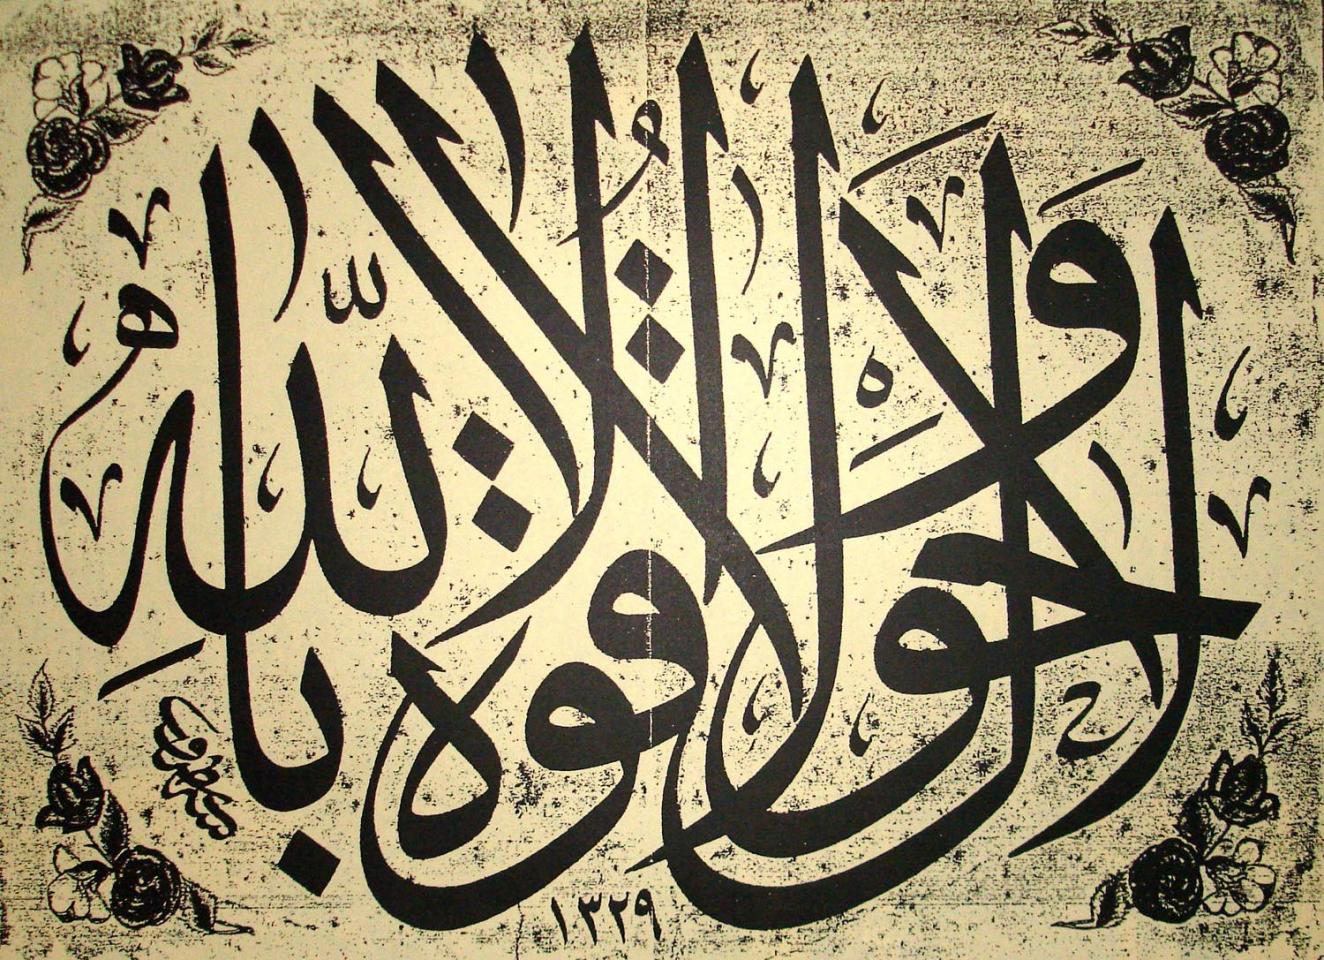 ولا حول ولا قوة الا بالله
١٣٢٩